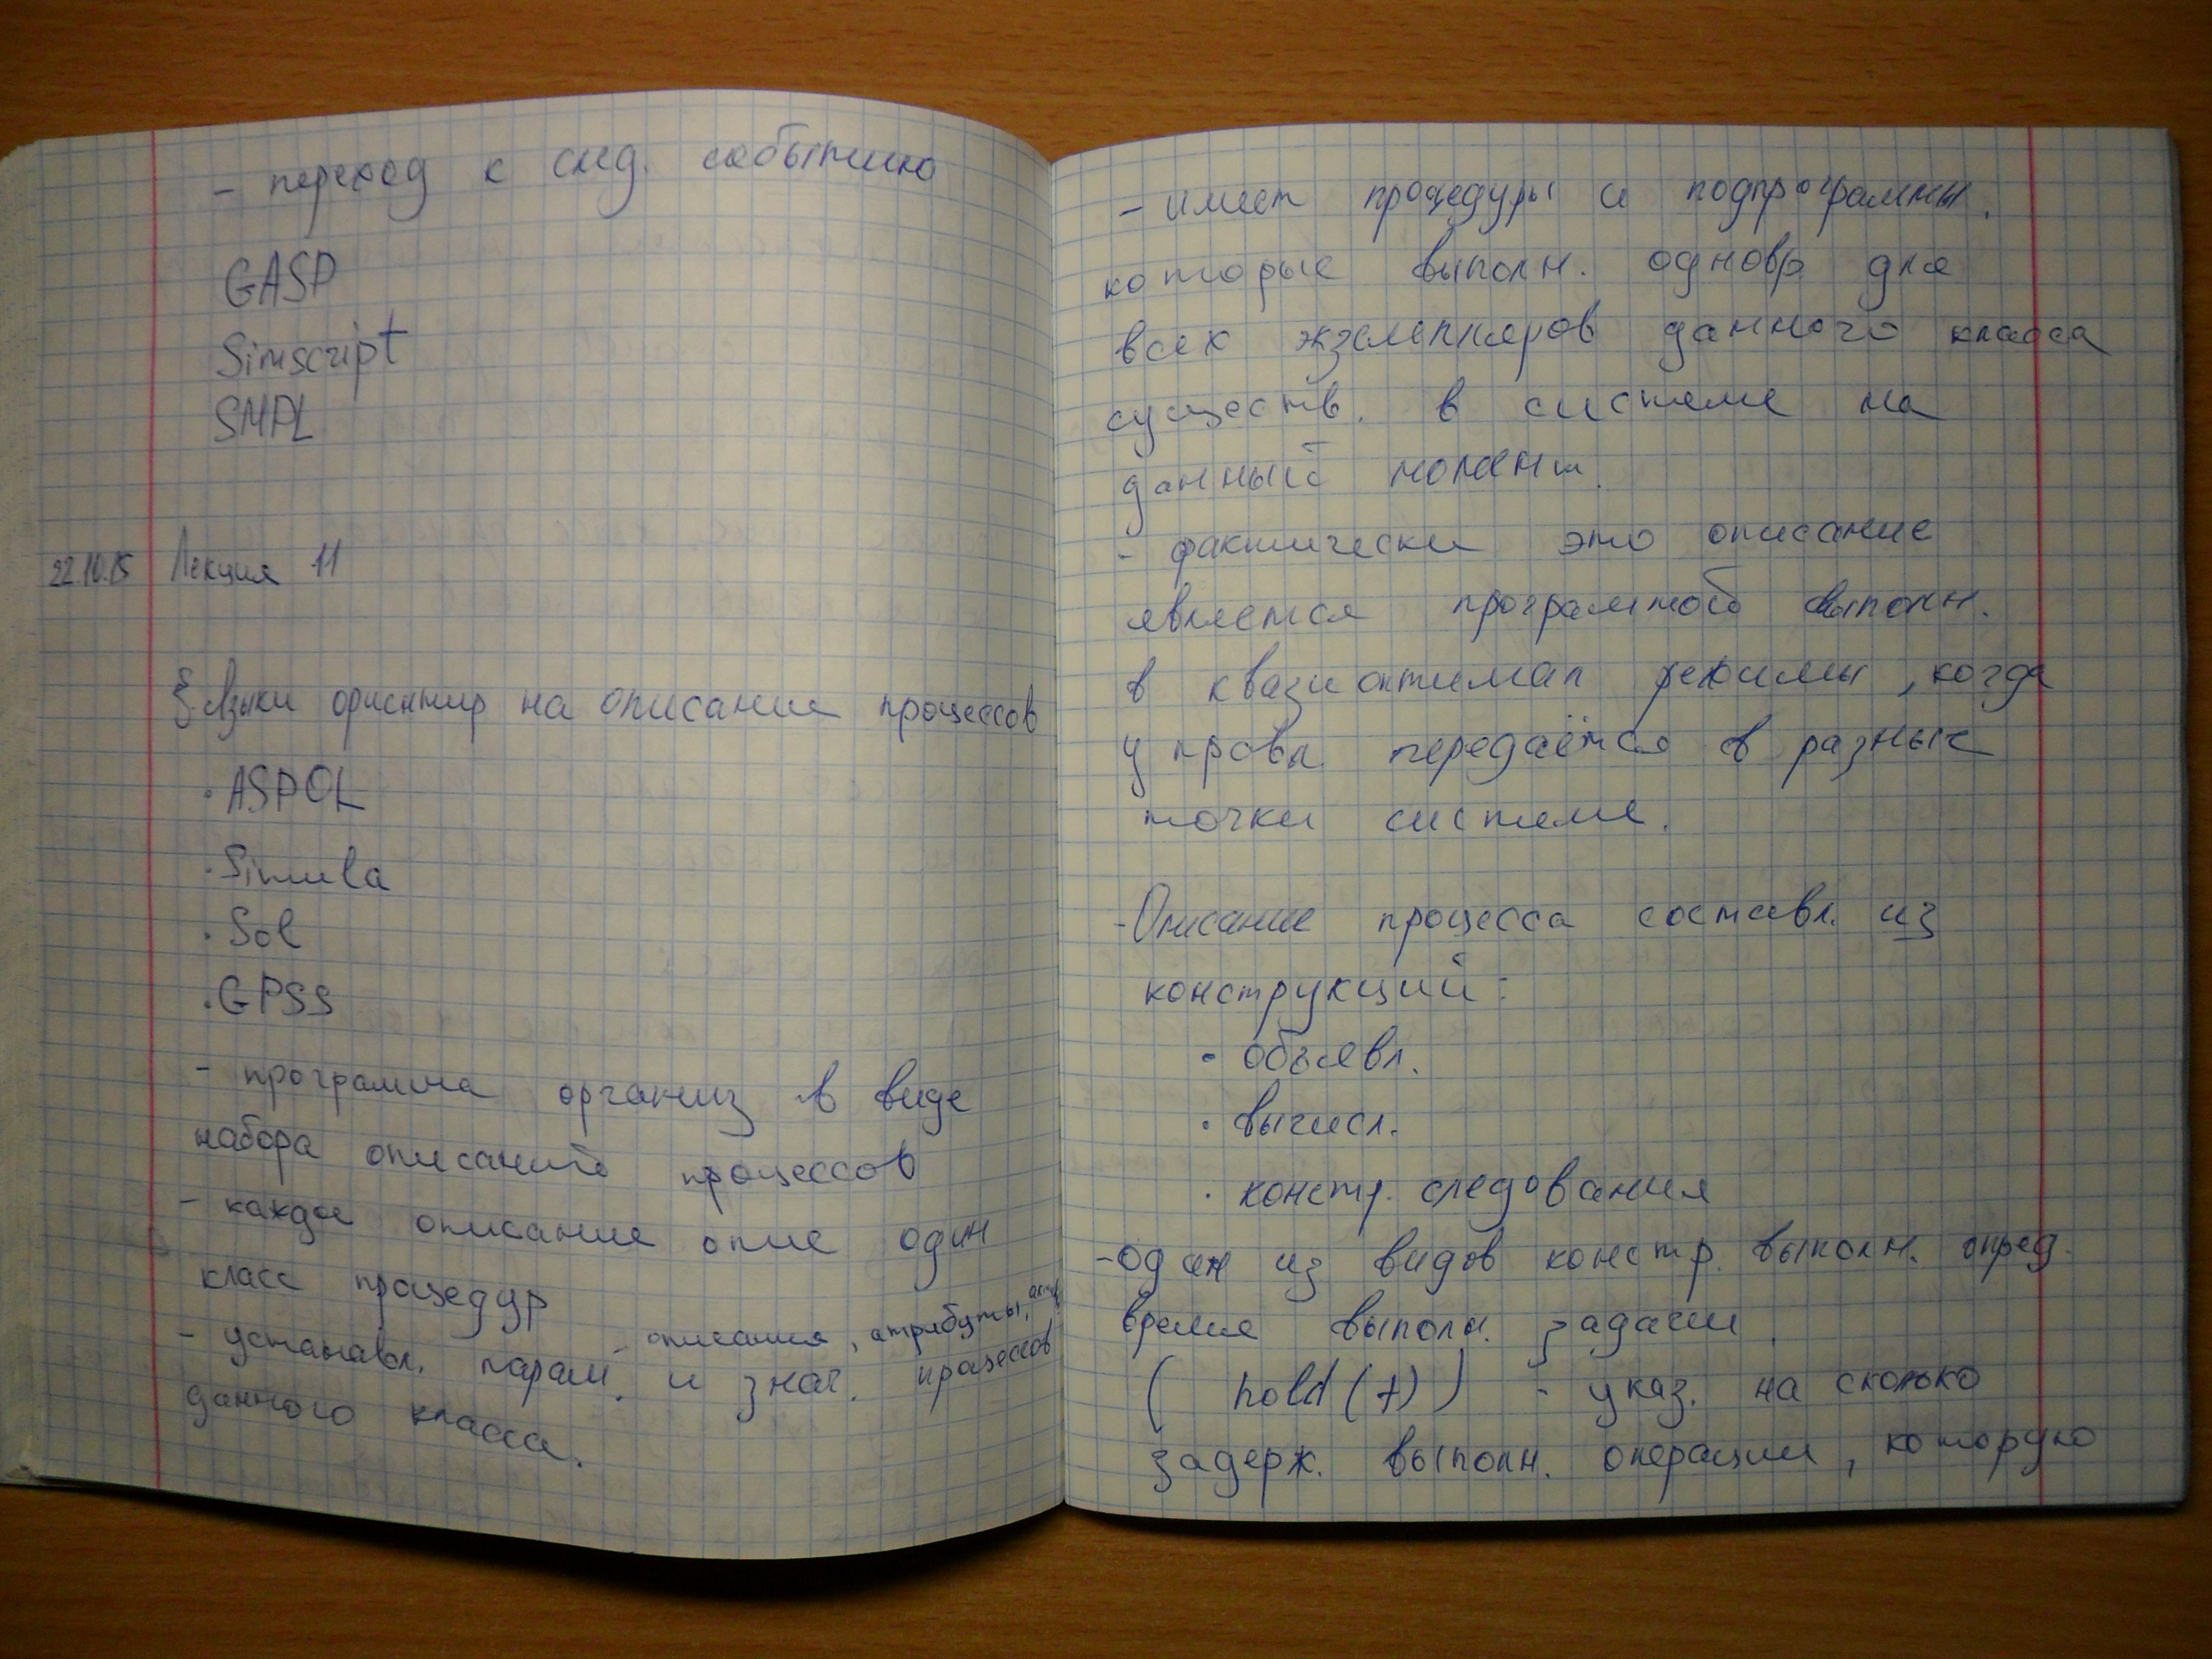 - переход к след. событию
GASP
Simscript
SMPL
22.10.15 Лекция 11
§. Языки ориентир на описание процессов
· ASPOL
· Simula
· Sol
· GPSS
- программа организ в виде
набора описаний процессов
- каждое описание опис один
класс процедур
- описания, атрибуты,
- устанавл. парам. и знач. процессов
данного класса.
- имеет процедуры и подпрограммы,
которые выполн. одновр для
всех экземпляров данного класса
существ. в системе на
данный момент.
- фактически это описание
является программой выполн.
в квазиоптимал режимы, когда
управл. передаётся в разные
точки системе.
- Описание процесса составл. из
конструкций:
· объявл.
· вычисл.
· констр. следования
- один из видов констр. выполн. опред.
время выполн. задачи
( hold (t) ) - указ. на сколько
задерж. выполн. операции, которую